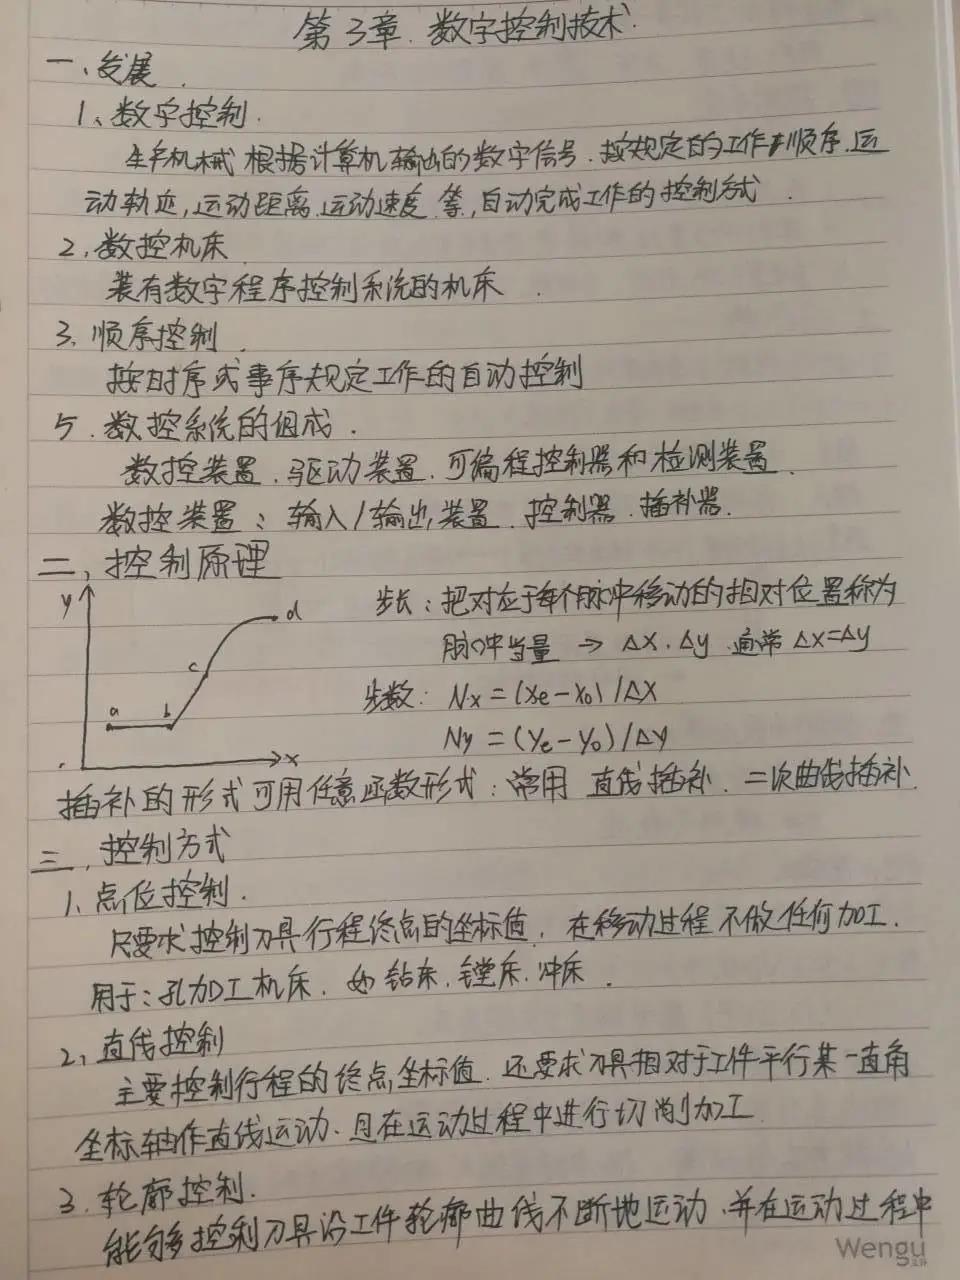 第3章.数字控制技术.
一、发展.
1、数字控制.
生产机械根据计算机输出的数字信号、按规定的工作顺序、运
动轨迹,运动距离、运动速度等,自动完成工作的控制方式.
2、数控机床
装有数字程序控制系统的机床.
3、顺序控制.
按时序或事序规定工作的自动控制
5.数控系统的组成.
数控装置、驱动装置、可编程控制器和检测装置.
数控装置:输入/输出装置、控制器、插补器.
二、控制原理
y
d
c
a
b
x
步长:把对应于每个脉冲移动的相对位置称为
脉冲当量 → Δx、Δy、通常Δx=Δy
步数: Nx=(xe-x0)/Δx
Ny=(ye-y0)/Δy
插补的形式可用任意函数形式:常用 直线插补、二次曲线插补.
三、控制方式
1、点位控制.
只要求控制刀具行程终点的坐标值,在移动过程不做任何加工.
用于:孔加工机床.如钻床、镗床、冲床.
2、直线控制
主要控制行程的终点坐标值.还要求刀具相对于工件平行某一直角
坐标轴作直线运动、且在运动过程中进行切削加工.
3.轮廓控制.
能够控制刀具沿工件轮廓曲线不断地运动、并在运动过程中
Wengu